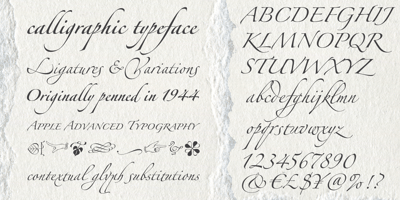 calligraphic typeface
Ligatures & Variations
Originally penned in 1944
Apple Advanced Typography
contextual glyph substitutions
ABCDEFGHIJ
KLMNOPQR
STUVWXYZ
abcdefghijklmn
opqrstuvwxyz
1234567890
@&€£$¥@%!?